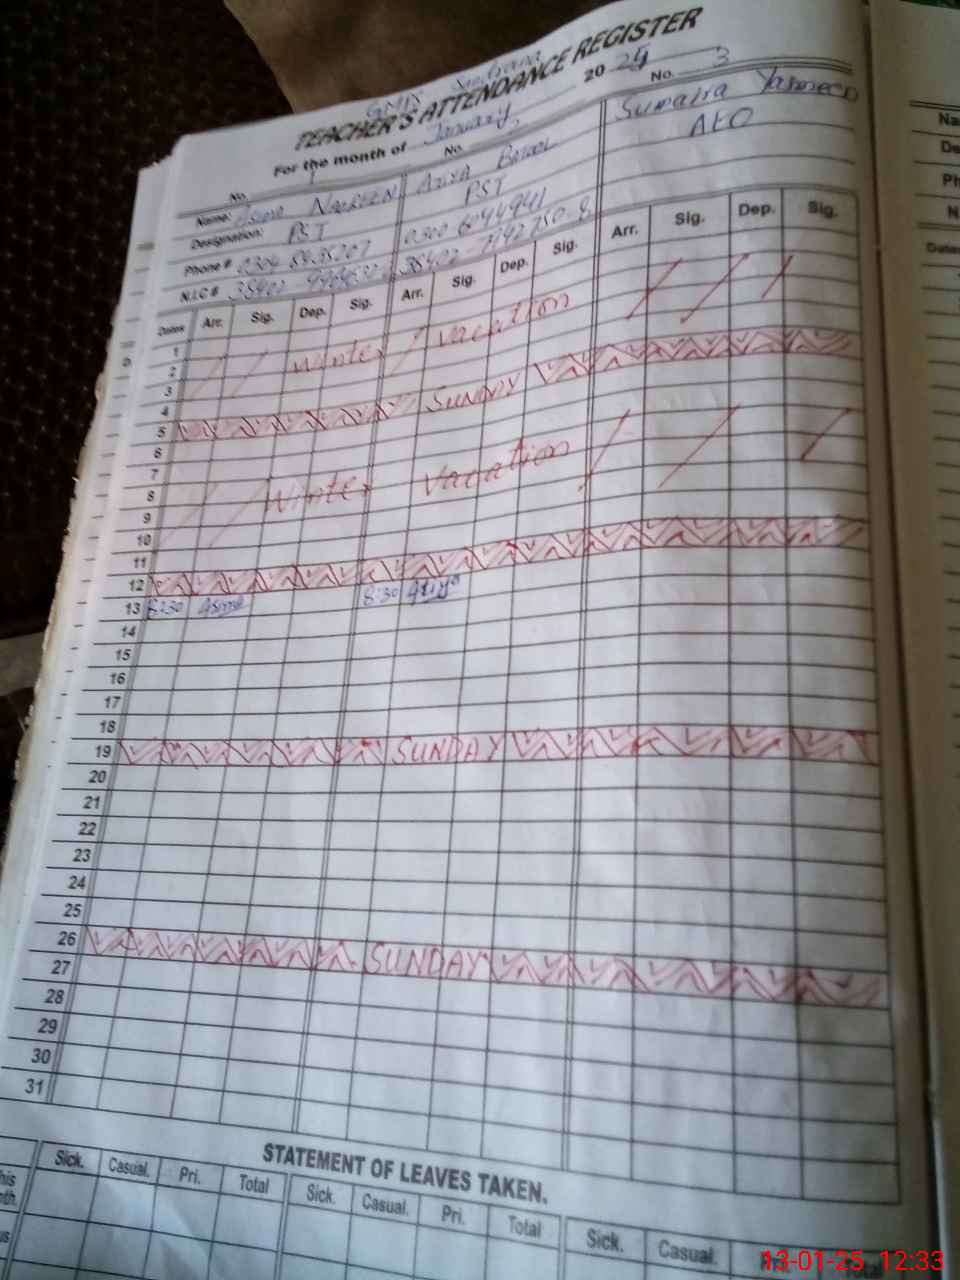 TEACHER'S ATTENDANCE REGISTER
For the month of January, 2025
No. 1 No. No. 3
Name: Asma Nasreen Sumaira Yasmeen
Designation: PST PST AEO
Phone # 0300 6044941
N.I.C #
Dates Arr. Sig. Dep. Sig. Arr. Sig. Dep. Sig. Arr. Sig. Dep. Sig.
1
2 Winter Vacation
3
4
5 SUNDAY
6
7
8 Winter Vacation
9
10
11
12
13 8:30 Asma 8:30 Atiya
14
15
16
17
18
19 SUNDAY
20
21
22
23
24
25
26 SUNDAY
27
28
29
30
31
STATEMENT OF LEAVES TAKEN.
Sick. Casual. Pri. Total Sick. Casual. Pri. Total Sick. Casual.
13-01-25 12:33